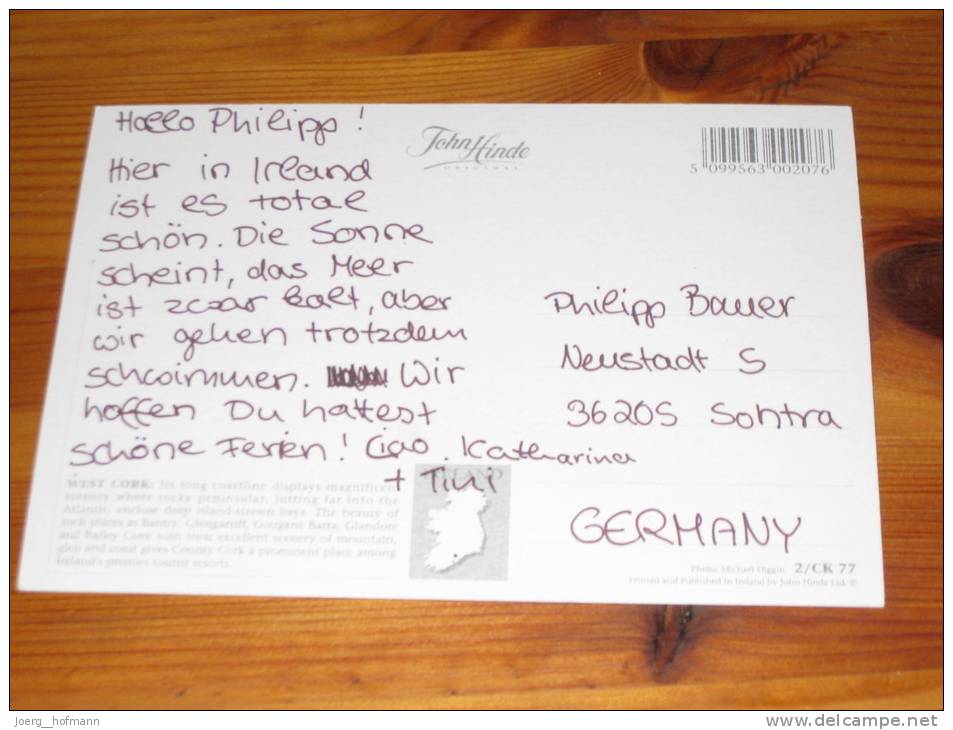 Hallo Philipp!
Hier in Irland
ist es total
schön. Die Sonne
scheint, das Meer
ist zwar kalt, aber
wir gehen trotzdem
schwimmen. Wir
hoffen Du hattest
schöne Ferien! Ciao. Katharina
+ Tini
John Hinde
ORIGINAL
5 099563 002076
Philipp Bauer
Neustadt 5
36205 Sontra
GERMANY
WEST CORK: Its long coastline displays magnificent
scenery where rocky peninsulas, jutting far into the
Atlantic, enclose deep island-strewn bays. The beauty of
such places as Bantry, Glengarriff, Gougane Barra, Glandore
and Barley Cove with their excellent scenery of mountain,
glen and coast gives County Cork a prominent place among
Ireland's premier tourist resorts.
IRELAND
Photo: Michael Diggin. 2/CK 77
Printed and Published in Ireland by John Hinde Ltd. ©
joerg__hofmann
www.delcampe.net